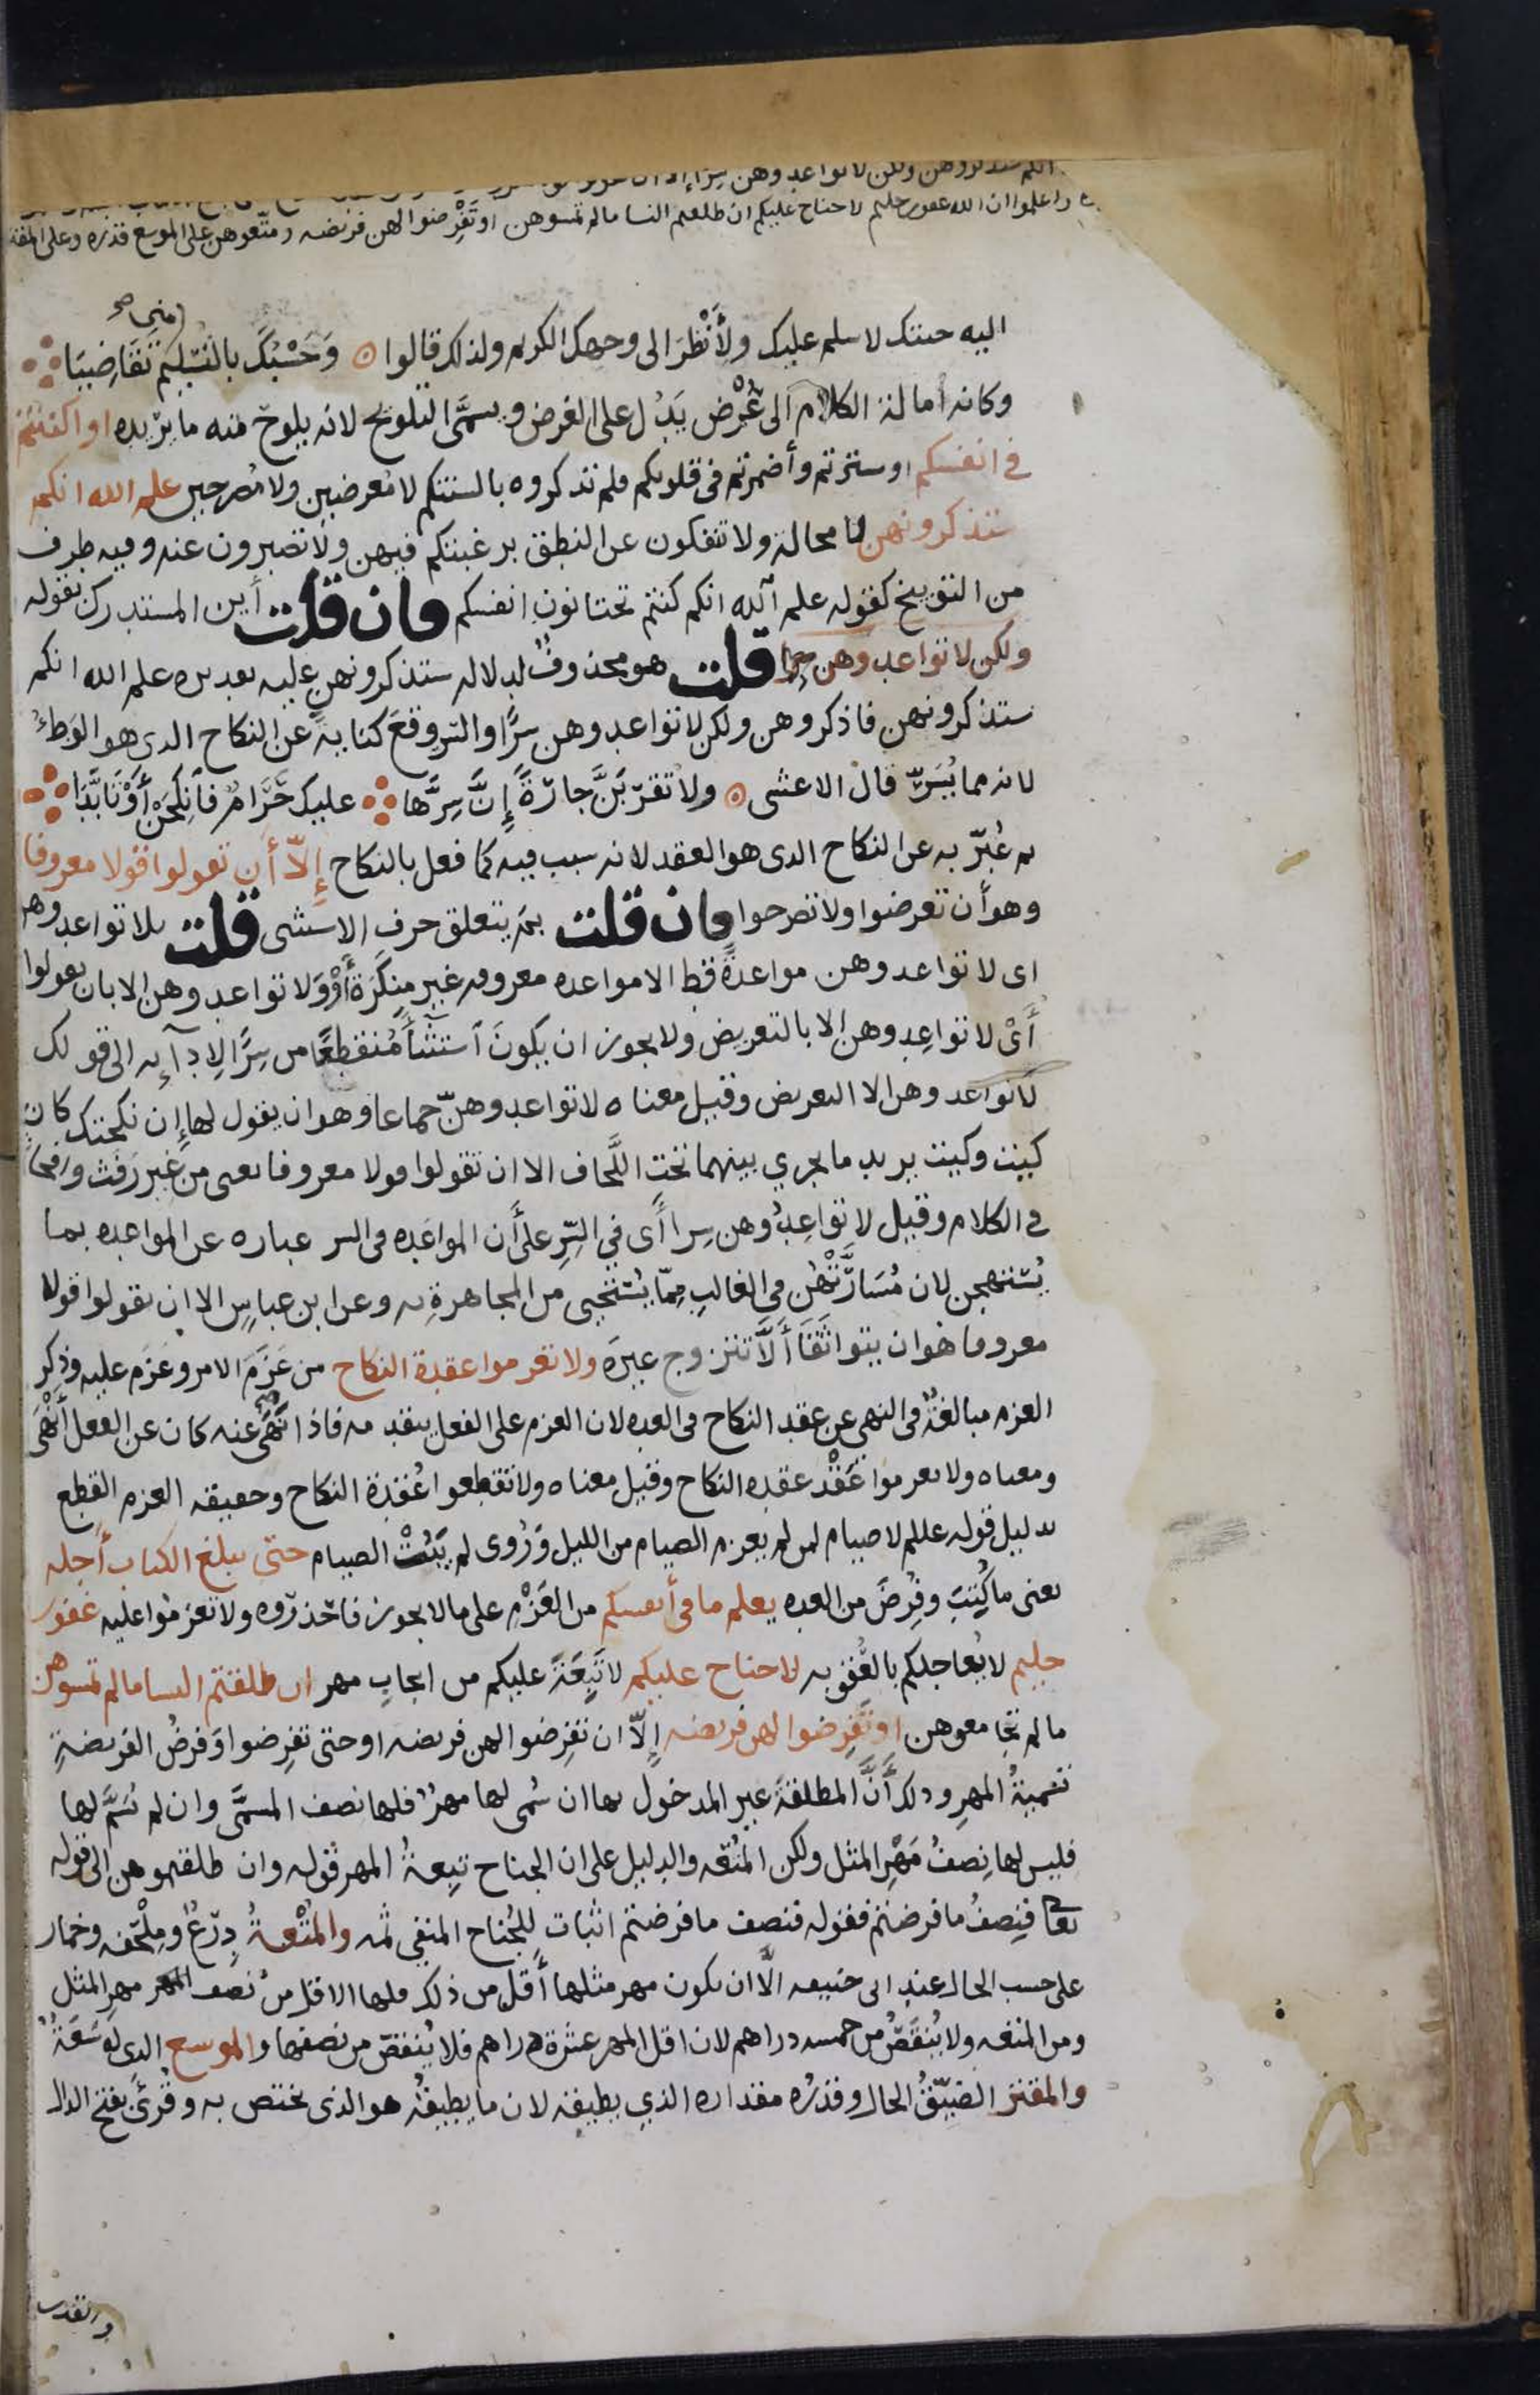 انكم ستذكرونهن ولكن لا تواعدوهن سرا إلا ان
واعلموا ان الله غفور حليم لا جناح عليكم ان طلقتم النسا ما لم تمسوهن او تَفْرِضوا لهن فريضه ومتّعوهن على الموسع قدَره وعلى المقتر
مني صح
اليه جئتك لاسلم عليك ولأَنْظُرَ الى وجهك الكريم ولذلك قالوا ۞ وَحَسْبُكَ بالتسليم تَقَاضِيَا
وكانه أمالة الكلام الى عُرْض يَدُل على الغرض ويسمَّى التلويح لانه يلوح منه ما يريده او اكننتم
في انفسكم او سترتم وأضمرتم فى قلوبكم فلم تذكروه بالسنتكم لا مُعرضين ولا مُصرحين علم الله انكم
ستذكرونهن لا محالة ولا تنفكون عن النطق برغبتكم فيهن ولا تصبرون عنه وفيه طرف
من التوبيخ كقوله علم الله انكم كنتم تختانون انفسكم فان قلت أين المستدرك بقوله
ولكن لا تواعدوهن سرا قلت هو محذوفٌ لدلاله ستذكرونهن عليه تقديره علم الله انكم
ستذكرونهن فاذكروهن ولكن لا تواعدوهن سرًّا والسر وقعَ كنايةً عن النكاح الذى هو الوَطءُ
لانه مما يُسَرّ قال الاعشى ۞ ولا تقرَبَنَّ جارَةً إِنَّ سِرَّها عليك حَرَامٌ فانكِحَنْ أَوْ تَأَبَّدَا
ثم عُبِّر به عن النكاح الذى هو العقد لانه سبب فيه كما فعل بالنكاح إِلّا أن تقولوا قولا معروفا
وهو أن تعرضوا ولا تصرحوا فان قلت بم يتعلق حرف الاستثنى قلت بلا تواعدوهن
اى لا تواعدوهن مواعدةً قط الا مواعده معروفه غير منكَرَة أَوْ ولا تواعدوهن الا بان تقولوا
أَىْ لا تواعِدوهن إلا بالتعريض ولا يجوز ان يكونَ استثنأً مُنقطِعًا من سِرًّا لادآئه الى قولك
لا تواعدوهن الا التعريض وقيل معناه لا تواعدوهنّ جماعا وهو ان يقول لها إن نكحتك كان
كيت وكيت يريد ما يجري بينهما تحت اللِّحاف الا ان تقولوا قولا معروفا يعنى من غير رَفَث وافحا
في الكلام وقيل لا تواعِدُوهن سِرا أى في السِّرِ على أن المواعَده فى السر عباره عن المواعده بما
يُستهجن لان مُسَارَّتَهُن في الغالبِ مِمّا يُستحيى من المجاهرةِ به وعن ابن عباسٍ الا ان تقولوا قولا
معروفا هو ان يتواثَقَا أَلَّا تتزوج غيرَه ولا تعزموا عقدة النكاح من عَزَمَ الامر وعَزَم عليه وذِكر
العزم مبالغةٌ في النهى عن عقد النكاح في العده لان العزم على الفعل يتقدمه فاذا نُهِى عنه كان عن الفعل أَنْهَى
ومعناه ولا تعزموا عَقْد عقده النكاح وقيل معناه ولا تقطعوا عُقدة النكاح وحقيقه العزم القطع
بدليل قوله عللم لا صيام لمن لم يعزم الصيام من الليل وَرُوى لم يَبُتْ الصيام حتى يبلغ الكتاب أَجله
يعنى ما كُتِبَ وفُرِضَ من العده يعلم ما فى أنفسكم من العَزْمِ على ما لا يجوز فاحذروه ولا تعزموا عليه غفور
حليم لا يُعاجلكم بالعُقوبه لا جناح عليكم لا تَبِعَةَ عليكم من ايجابِ مهر ان طلقتم النسا ما لم تمسوهن
ما لم تجامعوهن او تَفرِضوا لهن فريضه إلّا ان تفرِضوا لهن فريضه او حتى تفرِضوا وَفرضُ الفريضةِ
تسميةُ المهرِ وذلك أَنَّ المطلقةَ غير المدخول بها ان سُمى لها مهرٌ فلها نصف المسمَّى وان لم نُسَمَّ لها
فليس لها نِصفُ مَهْرِ المثل ولكن المتُعَه والدليل على ان الجناح تبِعةُ المهر قوله وان طلقتموهن الى قوله
تعا فنِصفُ ما فرضتم فقوله فنصف ما فرضتم اثبات للجُناح المنفى ثمه والمتْعةُ دِرْعٌ ومِلْحَفه وخمار
على حسب الحال عند ابى حنيفه الّا ان يكون مهر مثلها أَقلّ من ذلك فلها الاقل من نصف المهر مهر المثل
ومن المتعه ولا يُنقَصُ من خمسه دراهم لان اقل المهر عشرة دراهم فلا يُنقصُ من نصفها والموسع الذى له سَعَةٌ
والمقتر الضيّقُ الحال وقدَرُه مقداره الذي يطيقه لان ما يطيقُه هو الذى يختص به وقُرئ بفتح الدال
والقدر